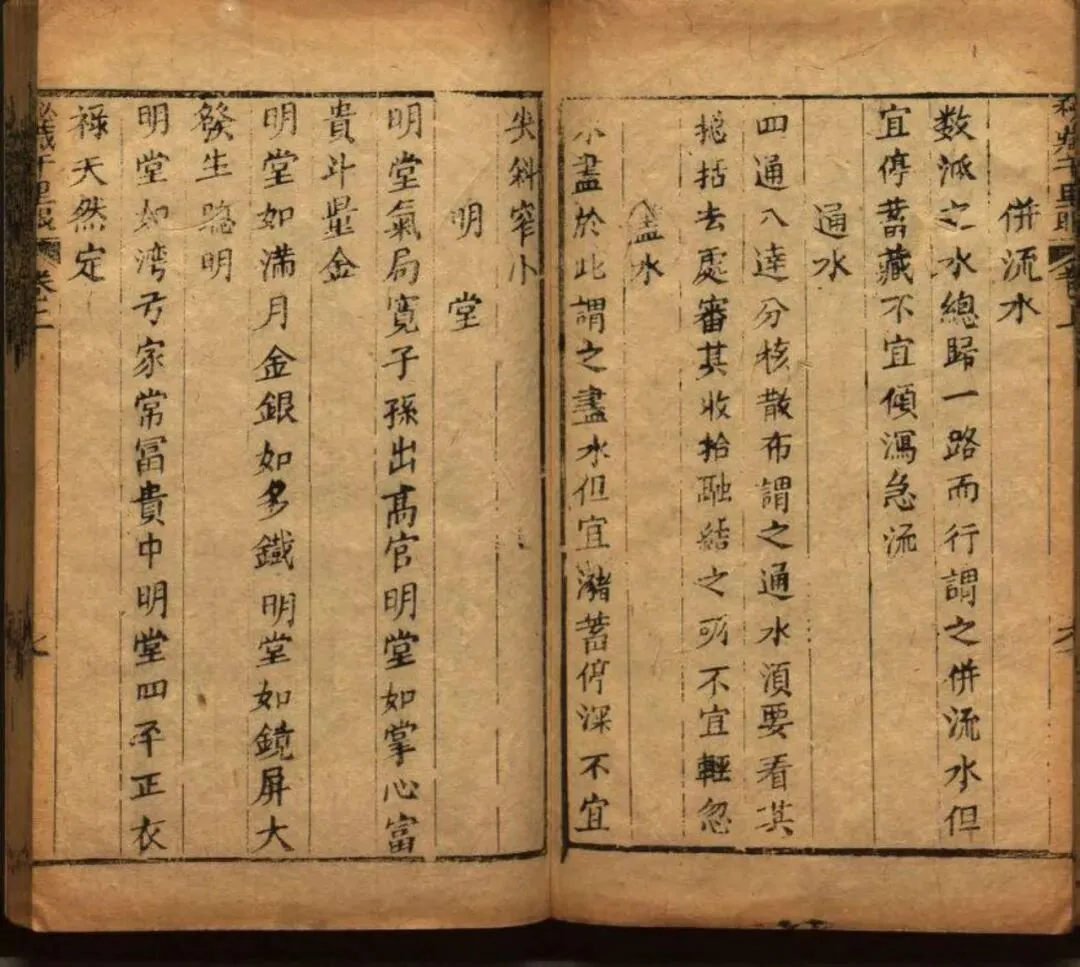 併流水
数派之水總歸一路而行謂之併流水但
宜停蓄藏不宜傾瀉急流
通水
四通八達分核散布謂之通水湏要看其
捴括去處審其收拾融結之所不宜輕忽
盡水
水盡於此謂之盡水但宜瀦蓄停深不宜
尖斜窄小
明堂
明堂氣局寬子孫出高官明堂如掌心富
貴斗量金
明堂如滿月金銀如多鐵明堂如鏡屏大
發生聰明
明堂如湾弓家常冨貴中明堂四平正衣
祿天然定
千里眼 卷之二